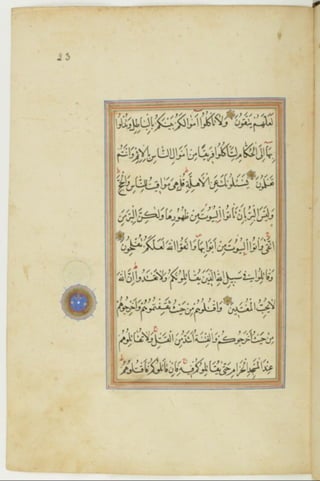 23
لَعَلَّهُمْ يَتَّقُونَ وَلَا تَأْكُلُوا أَمْوَالَكُمْ بَيْنَكُمْ بِالْبَاطِلِ وَتُدْلُوا
بِهَا إِلَى الْحُكَّامِ لِتَأْكُلُوا فَرِيقًا مِنْ أَمْوَالِ النَّاسِ بِالْإِثْمِ وَأَنْتُمْ
تَعْلَمُونَ يَسْئَلُونَكَ عَنِ الْأَهِلَّةِ قُلْ هِيَ مَوَاقِيتُ لِلنَّاسِ وَالْحَجِّ
وَلَيْسَ الْبِرُّ بِأَنْ تَأْتُوا الْبُيُوتَ مِنْ ظُهُورِهَا وَلَكِنَّ الْبِرَّ مَنِ
اتَّقَى وَأْتُوا الْبُيُوتَ مِنْ أَبْوَابِهَا وَاتَّقُوا اللَّهَ لَعَلَّكُمْ تُفْلِحُونَ
وَقَاتِلُوا فِي سَبِيلِ اللَّهِ الَّذِينَ يُقَاتِلُونَكُمْ وَلَا تَعْتَدُوا إِنَّ اللَّهَ
لَا يُحِبُّ الْمُعْتَدِينَ وَاقْتُلُوهُمْ حَيْثُ ثَقِفْتُمُوهُمْ وَأَخْرِجُوهُمْ
مِنْ حَيْثُ أَخْرَجُوكُمْ وَالْفِتْنَةُ أَشَدُّ مِنَ الْقَتْلِ وَلَا تُقَاتِلُوهُمْ
عِنْدَ الْمَسْجِدِ الْحَرَامِ حَتَّى يُقَاتِلُوكُمْ فِيهِ فَإِنْ قَاتَلُوكُمْ فَاقْتُلُوهُمْ